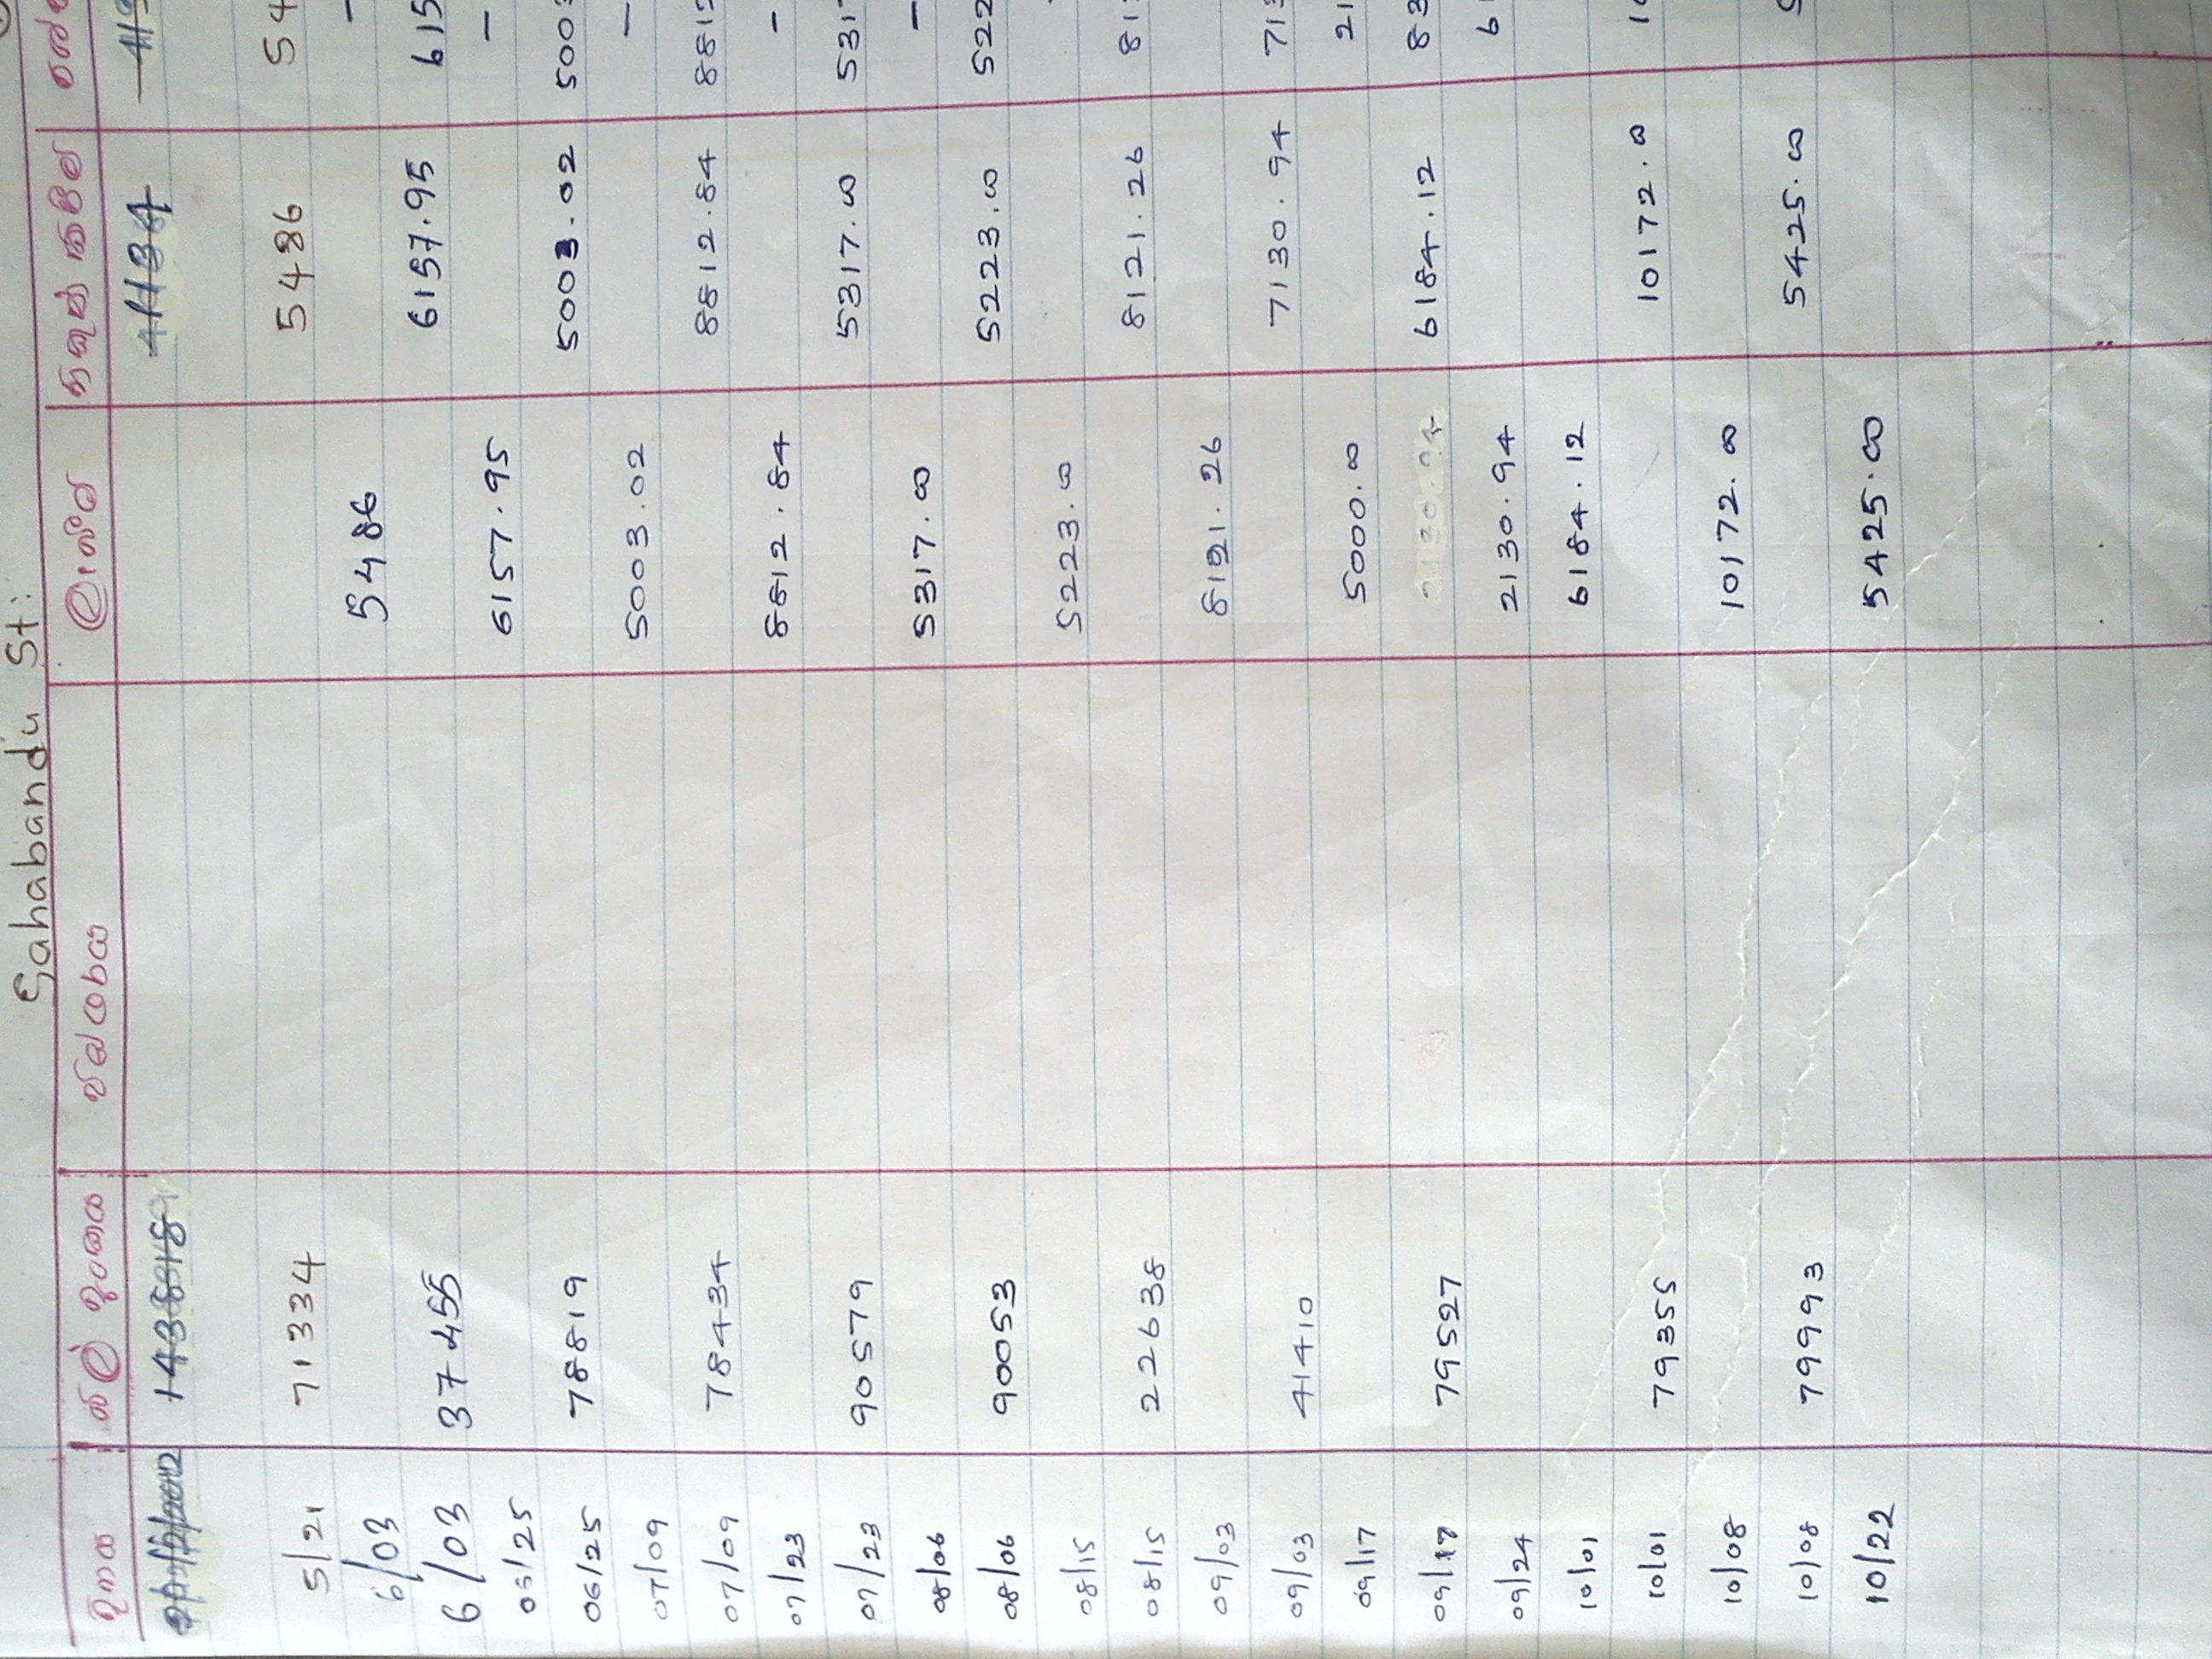 Sahabandu St:
දිනය බිල් අංකය විස්තරය ලැබීම් නිකුත් කිරීම්
143818 41134
5/21 71334 5486 54
6/03 5486 —
6/03 37455 6157.95 615
05/25 6157.95 —
06/25 78819 5003.02 5003
07/09 5003.02 —
07/09 78434 8812.84 8812
07/23 8812.84 —
07/23 90579 5317.00 531
08/06 5317.00 —
08/06 90053 5223.00 522
08/15 5223.00
08/15 22638 8121.26 81
09/03 8121.26
09/03 41410 7130.94 713
09/17 5000.00 21
09/17 79527 2130.94 6184.12 83
09/24 2130.94 6
10/01 6184.12
10/01 79355 10172.00 10
10/08 10172.00
10/08 79993 5425.00 5
10/22 5425.00